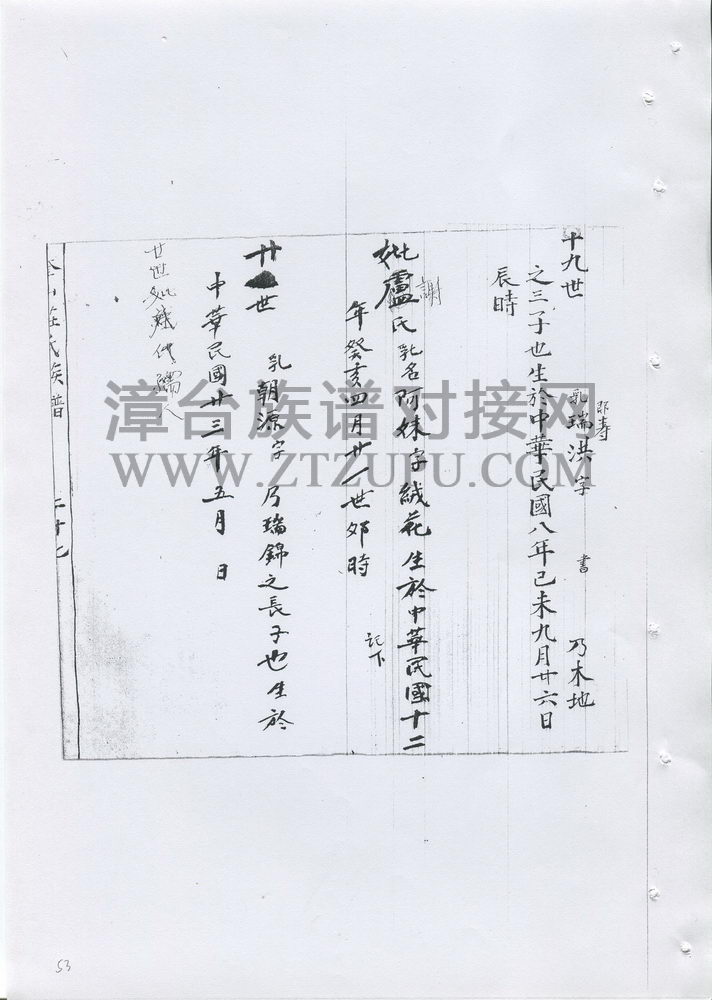 十九世 乳瑞洪字 書 乃木地
即寿
之三子也生於中華民國八年己未九月廿六日
辰時
妣盧氏乳名阿妹字絨花生於中華民國十二
謝
年癸亥四月廿一世卯時
記下
廿世 乳朝源字 乃瑞錦之長子也生於
中華民國廿三年五月 日
廿世妣
氏族譜 二十七
漳台族谱对接网
WWW.ZTZUPU.COM
53